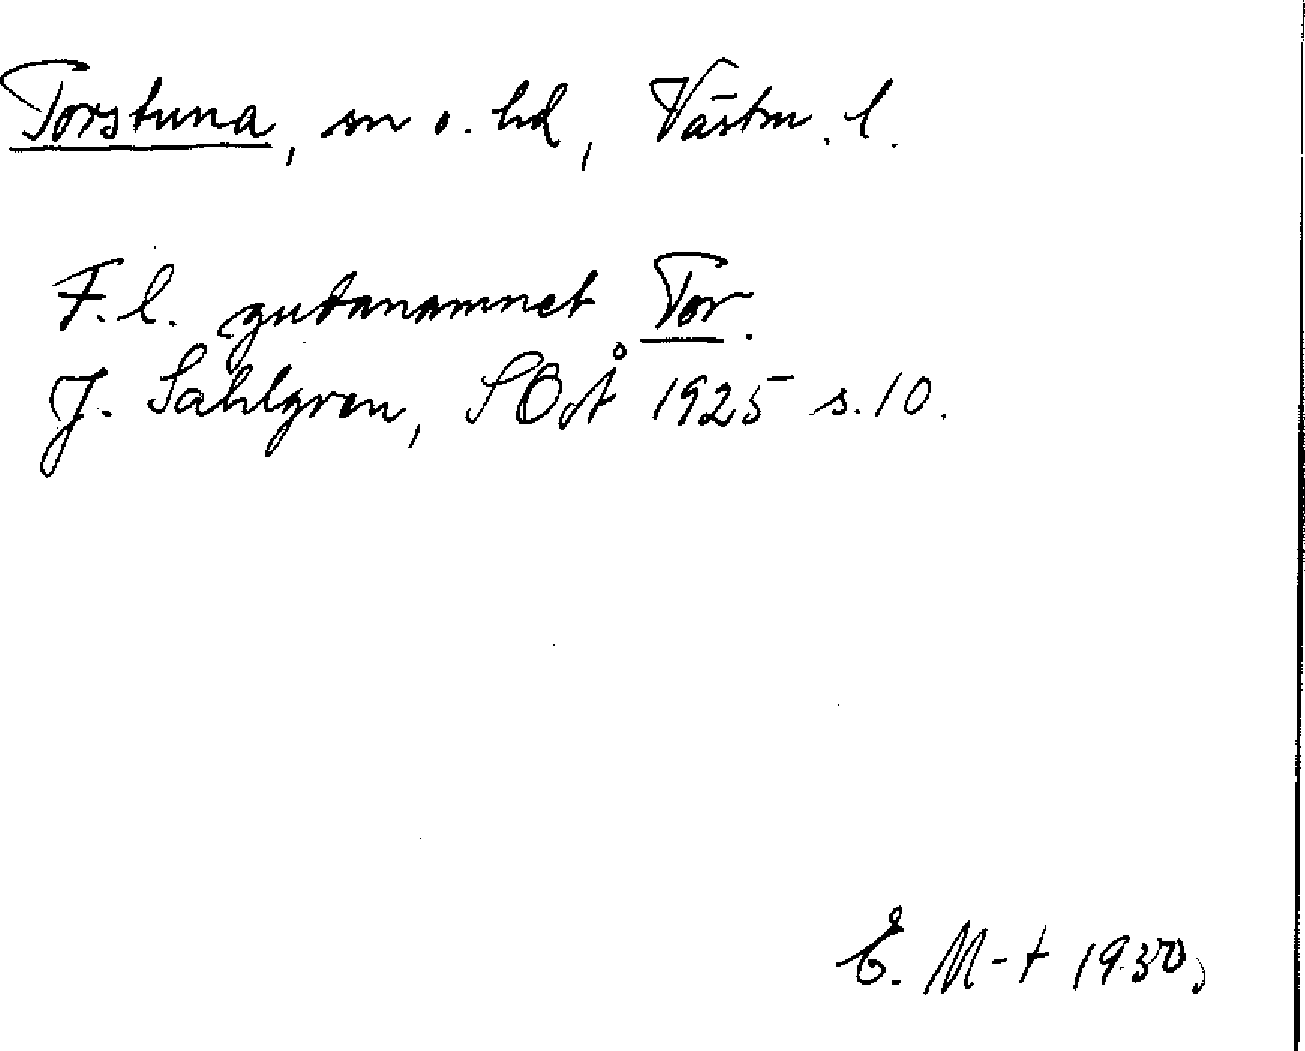 Torstuna, sn o. hd, Västm. l.
F.l. gudanamnet Tor.
J. Sahlgren, SOÅ 1925 s. 10.
E. M-t 1930,